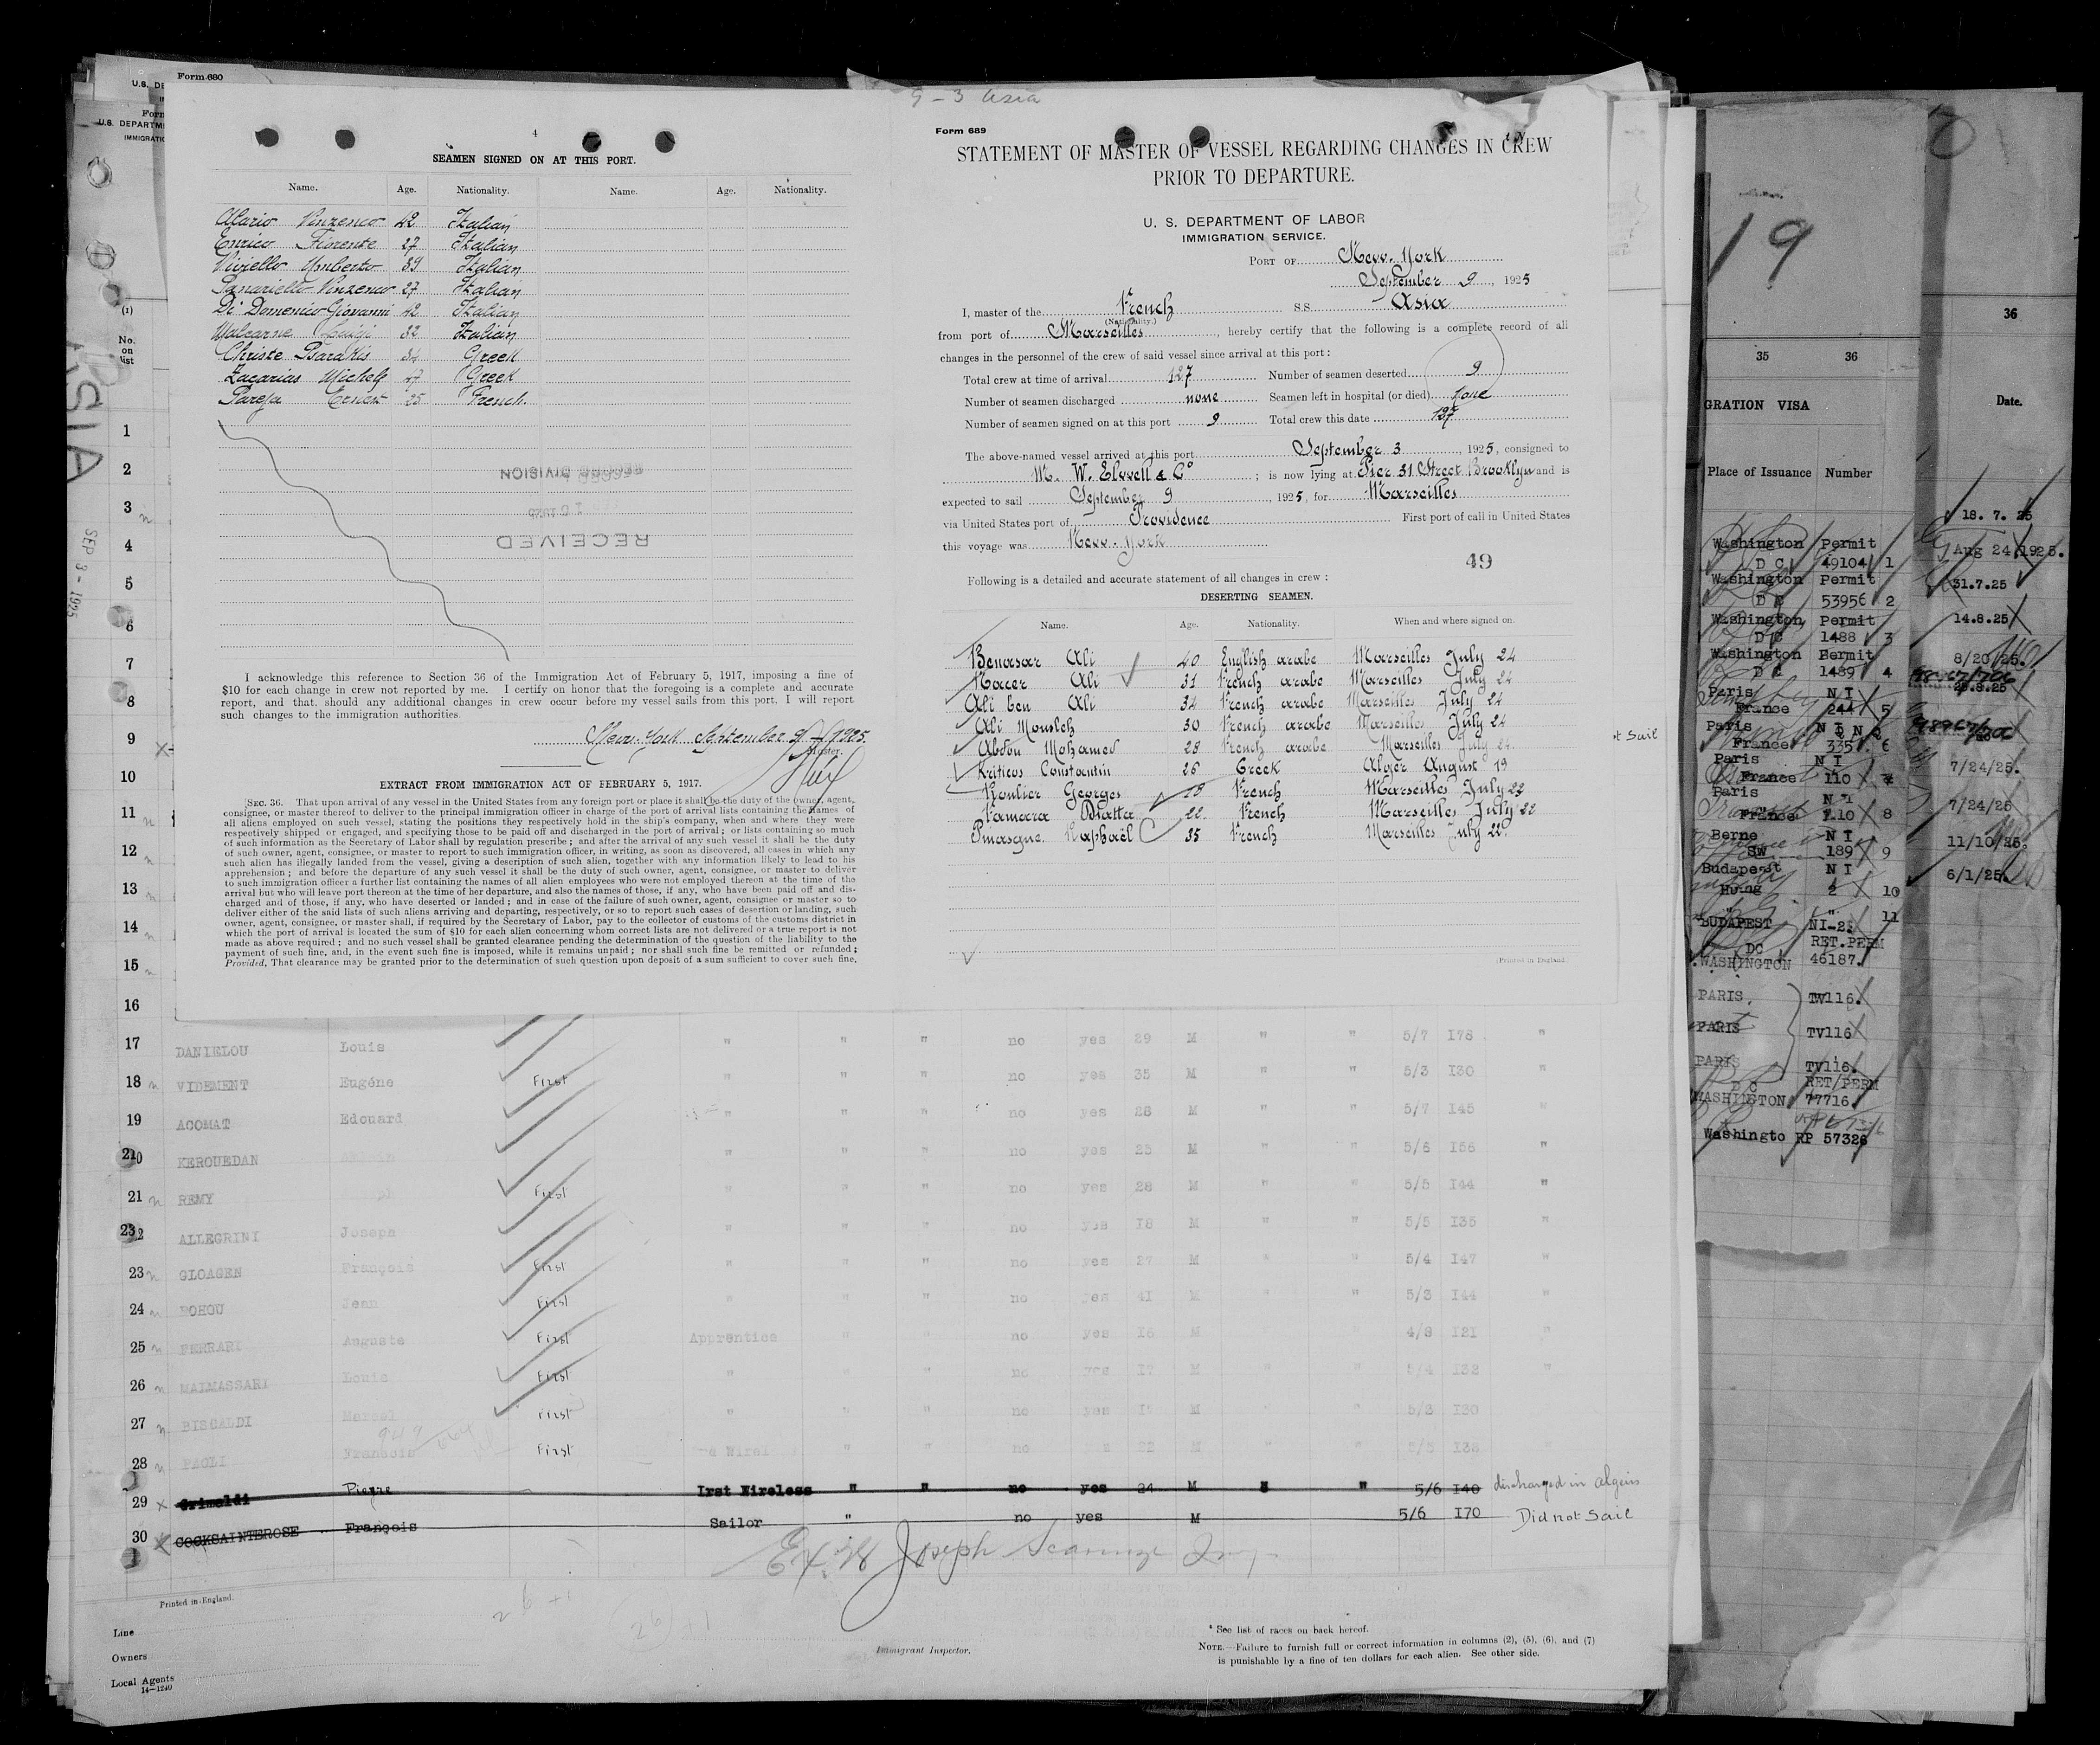 Form 680
4
SEAMEN SIGNED ON AT THIS PORT.
Name. Age. Nationality. Name. Age. Nationality.
Vinzenco 42 Italian
Enrico Fiorente 27 Italian
Umberto 39 Italian
Vinzenco 27 Italian
Di Domenico Giovanni 42 Italian
Luigi 32 Italian
Christe Psarakis 34 Greek
Zacarias Michely 27 Greek
Pareja Ernest 25 French
RECEIVED
DIVISION
I acknowledge this reference to Section 36 of the Immigration Act of February 5, 1917, imposing a fine of
$10 for each change in crew not reported by me. I certify on honor that the foregoing is a complete and accurate
report, and that, should any additional changes in crew occur before my vessel sails from this port, I will report
such changes to the immigration authorities.
New-York September 9 1925.
Master.
EXTRACT FROM IMMIGRATION ACT OF FEBRUARY 5, 1917.
SEC. 36. That upon arrival of any vessel in the United States from any foreign port or place it shall be the duty of the owner, agent,
consignee, or master thereof to deliver to the principal immigration officer in charge of the port of arrival lists containing the names of
all aliens employed on such vessel, stating the positions they respectively hold in the ship's company, when and where they were
respectively shipped or engaged, and specifying those to be paid off and discharged in the port of arrival; or lists containing so much
of such information as the Secretary of Labor shall by regulation prescribe; and after the arrival of any such vessel it shall be the duty
of such owner, agent, consignee, or master to report to such immigration officer, in writing, as soon as discovered, all cases in which any
such alien has illegally landed from the vessel, giving a description of such alien, together with any information likely to lead to his
apprehension; and before the departure of any such vessel it shall be the duty of such owner, agent, consignee, or master to deliver
to such immigration officer a further list containing the names of all alien employees who were not employed thereon at the time of the
arrival but who will leave port thereon at the time of her departure, and also the names of those, if any, who have been paid off and dis-
charged and of those, if any, who have deserted or landed; and in case of the failure of such owner, agent, consignee or master so to
deliver either of the said lists of such aliens arriving and departing, respectively, or so to report such cases of desertion or landing, such
owner, agent, consignee, or master shall, if required by the Secretary of Labor, pay to the collector of customs of the customs district in
which the port of arrival is located the sum of $10 for each alien concerning whom correct lists are not delivered or a true report is not
made as above required; and no such vessel shall be granted clearance pending the determination of the question of the liability to the
payment of such fine, and, in the event such fine is imposed, while it remains unpaid; nor shall such fine be remitted or refunded;
Provided, That clearance may be granted prior to the determination of such question upon deposit of a sum sufficient to cover such fine.
9-3 Asia
Form 689
STATEMENT OF MASTER OF VESSEL REGARDING CHANGES IN CREW
PRIOR TO DEPARTURE.
U. S. DEPARTMENT OF LABOR
IMMIGRATION SERVICE.
PORT OF New-York
September 9, 1925
I, master of the French S.S. Asia
(Nationality.)
from port of Marseilles, hereby certify that the following is a complete record of all
changes in the personnel of the crew of said vessel since arrival at this port:
Total crew at time of arrival 127 Number of seamen deserted 9
Number of seamen discharged none Seamen left in hospital (or died) none
Number of seamen signed on at this port 9 Total crew this date 127
The above-named vessel arrived at this port September 3, 1925, consigned to
M. W. Elwell & Co; is now lying at Pier 31 Street Brooklyn and is
expected to sail September 9, 1925, for Marseilles
via United States port of Providence First port of call in United States
this voyage was New-York
49
Following is a detailed and accurate statement of all changes in crew:
DESERTING SEAMEN.
Name. Age. Nationality. When and where signed on.
Benasar Ali 40 English arabe Marseilles July 24
Nacer Ali 31 French arabe Marseilles July 24
Ali ben Ali 34 French arabe Marseilles July 24
Ali Mousleh 30 French arabe Marseilles July 24
Abdou Mohamed 28 French arabe Marseilles July 24
Kriticos Constantin 26 Greek Alger August 19
Georges 28 French Marseilles July 22
Camara Diatta 22 French Marseilles July 22
Pinasque Raphael 35 French Marseilles July 22
(Printed in England
17 DANIELOU Louis " " " no yes 29 M " " 5/7 178 "
18 VIDEMENT Eugéne First " " " no yes 35 M " " 5/3 130 "
19 ACOMAT Edouard " " " no yes 28 M " " 5/7 145 "
20 KEROUEDAN " " " no yes 25 M " " 5/6 156 "
21 REMY First " " " no yes 28 M " " 5/5 144 "
22 ALLEGRINI Joseph " " " no yes 18 M " " 5/5 135 "
23 GLOAGEN François First " " " no yes 27 M " " 5/4 147 "
24 POHOU Jean First " " " no yes 41 M " " 5/3 144 "
25 FERRARI Auguste First Apprentice " " no yes 16 M 4/8 121 "
26 MALMASSARI Louis First " " " no yes 17 M 5/4 132
27 BISCALDI Marcel First " no yes M 5/3 130
28 PAOLI Francois First no 22 M 138
29 Grimaldi Pierre Irst Wireless " " no yes 24 M " " 5/6 140 discharged in Algeirs
30 COCKSAINTEROSE François Sailor " no yes M 5/6 170 Did not Sail
Joseph
Printed in England.
Line
Owners
Local Agents
14—1240
Immigrant Inspector.
* See list of races on back hereof.
NOTE.—Failure to furnish full or correct information in columns (2), (5), (6), and (7)
is punishable by a fine of ten dollars for each alien. See other side.
(1)
No.
on
list
ASIA
SEP 3 - 1925
1
2
3
4
5
6
7
8
9
10
11
12
13
14
15
16
19
35 36
GRATION VISA
Place of Issuance Number
Washington Permit
D C 49104 1
Washington Permit
D C 53956 2
Washington Permit
D C 1488 3
Washington Permit
D C 1489 4
Paris N I
France 244 5
Paris
France 335 6
Paris N I
France 110 7
Paris
France 110 8
Berne N I
SW 189 9
Budapest N I
Hung 2 10
BUDAPEST NI-2 11
DC RET.PERM
WASHINGTON 46187.
PARIS. TV116.
PARIS TV116
PARIS TV116.
D C RET/PERM
WASHINGTON 77716.
Washingto RP 57326
36
Date.
18. 7. 25
Aug 24, 1925.
31.7.25
14.8.25
8/20/25.
7/24/25.
7/24/25
11/10/25.
6/1/25.